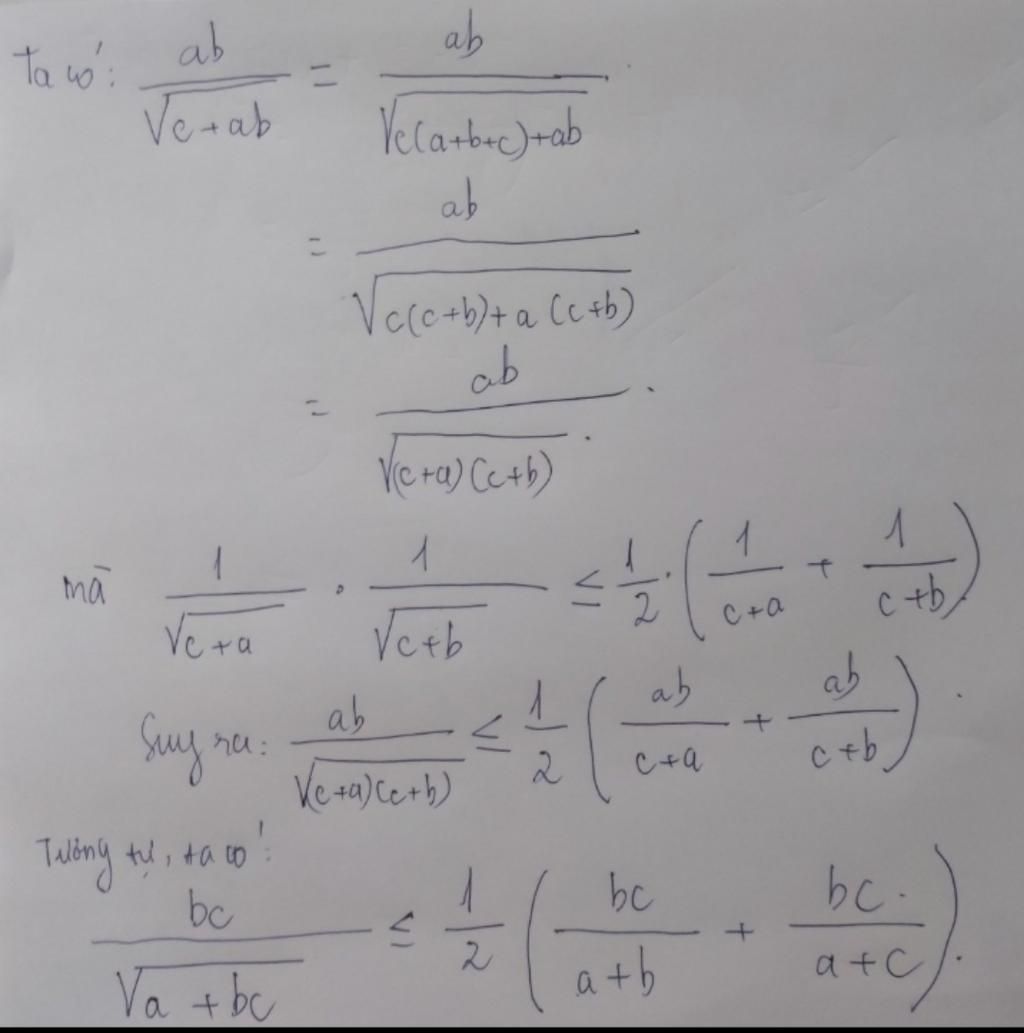 Ta có: \frac{ab}{\sqrt{c+ab}} = \frac{ab}{\sqrt{c(a+b+c)+ab}}
= \frac{ab}{\sqrt{c(c+b)+a(c+b)}}
= \frac{ab}{\sqrt{(c+a)(c+b)}}.
mà \frac{1}{\sqrt{c+a}} \cdot \frac{1}{\sqrt{c+b}} \le \frac{1}{2} \cdot \left( \frac{1}{c+a} + \frac{1}{c+b} \right)
Suy ra: \frac{ab}{\sqrt{(c+a)(c+b)}} \le \frac{1}{2} \left( \frac{ab}{c+a} + \frac{ab}{c+b} \right).
Tương tự, ta có:
\frac{bc}{\sqrt{a+bc}} \le \frac{1}{2} \left( \frac{bc}{a+b} + \frac{bc}{a+c} \right).